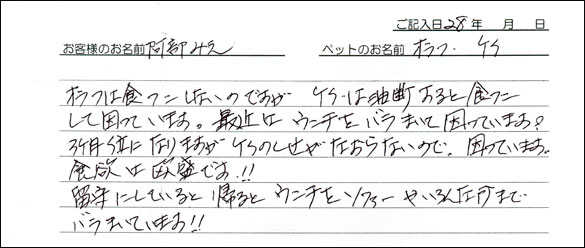 ご記入日28年 月 日
お客様のお名前 阿部みえ ペットのお名前 オラフ・ケイ
オラフは食フンしないのですが ケイは油断すると食フン
して困っています。最近はウンチをバラまいて困っています?
3ヶ月位になりますがケイのしせがなおらないので、困っています。
食欲は旺盛です.!!
留守にしていると帰るとウンチをソファーやいろんな所まで
バラまいています!!